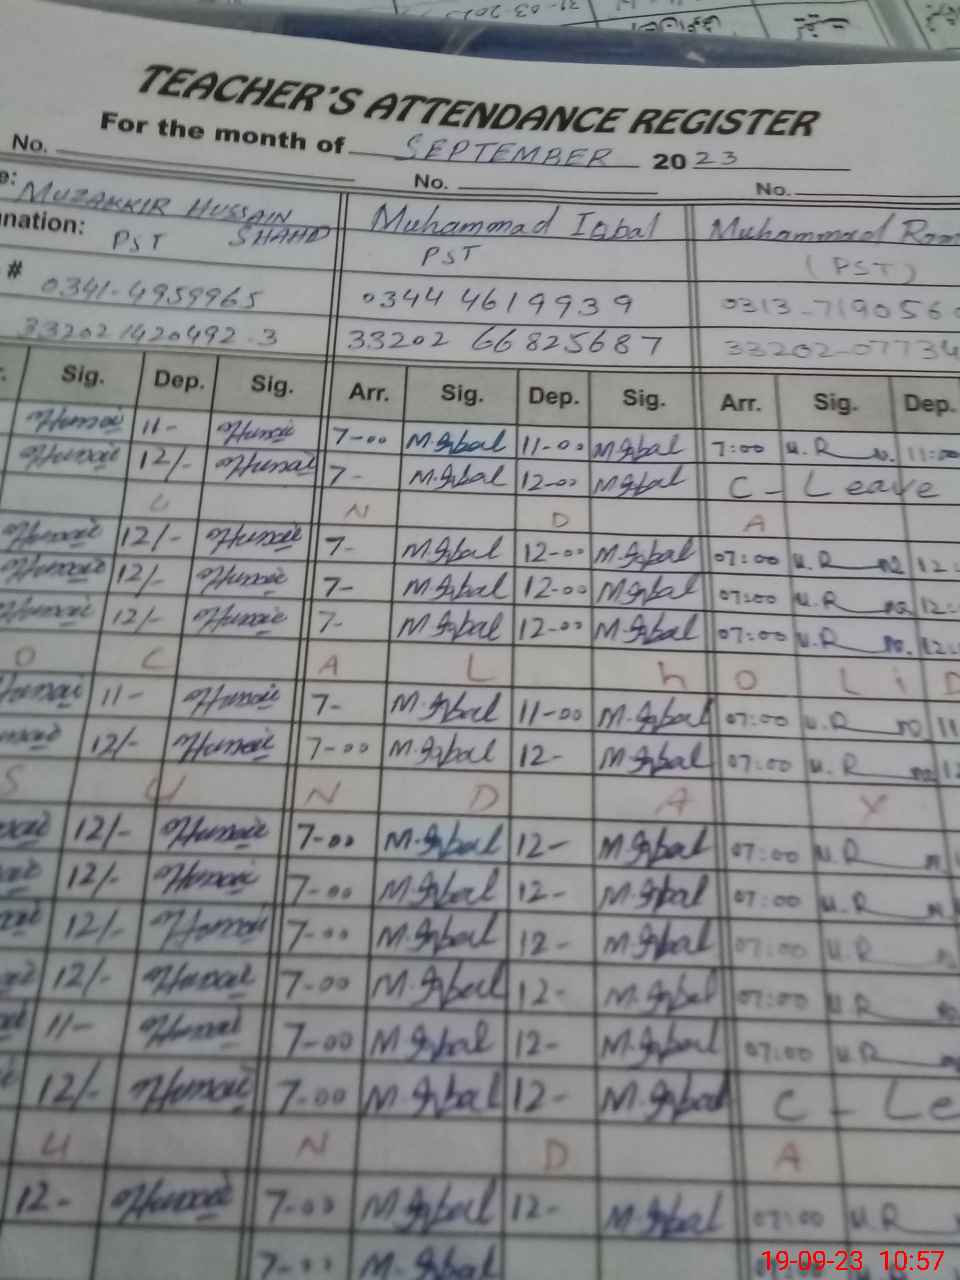 TEACHER'S ATTENDANCE REGISTER
For the month of SEPTEMBER 20 23
No. No. No.
MUZAKKIR HUSSAIN SHAHD Muhammad Iqbal Muhammad
nation: PST PST (PST)
# 0341-4959965 0344 4619939 0313-719056
33202 1420492-3 33202 6682568 7 33202-07734
Sig. Dep. Sig. Arr. Sig. Dep. Sig. Arr. Sig. Dep.
11- 7-00 M.Iqbal 11-00 M.Iqbal 7:00 U.R 11:00
12/- 7- M.Iqbal 12-00 M.Iqbal C - Leave
U N D A
12/- 7- M.Iqbal 12-00 M.Iqbal 07:00 U.R 12
12/- 7- M.Iqbal 12-00 M.Iqbal 07:00 U.R 12
12/- 7- M.Iqbal 12-00 M.Iqbal 07:00 U.R 12
O C A L h O L i D
11- 7- M.Iqbal 11-00 M.Iqbal 07:00 U.R 11
12/- 7-00 M.Iqbal 12- M.Iqbal 07:00 U.R 12
S U N D A Y
12/- 7-00 M.Iqbal 12- M.Iqbal 07:00 U.R
12/- 7-00 M.Iqbal 12- M.Iqbal 07:00 U.R
12/- 7-00 M.Iqbal 12- M.Iqbal 07:00 U.R
12/- 7-00 M.Iqbal 12- M.Iqbal 07:00 U.R
11- 7-00 M.Iqbal 12- M.Iqbal 07:00 U.R
12/- 7-00 M.Iqbal 12- M.Iqbal C - Le
U N D A
12- 7-00 M.Iqbal 12- M.Iqbal 07:00 U.R
7-00 M.Iqbal
19-09-23 10:57